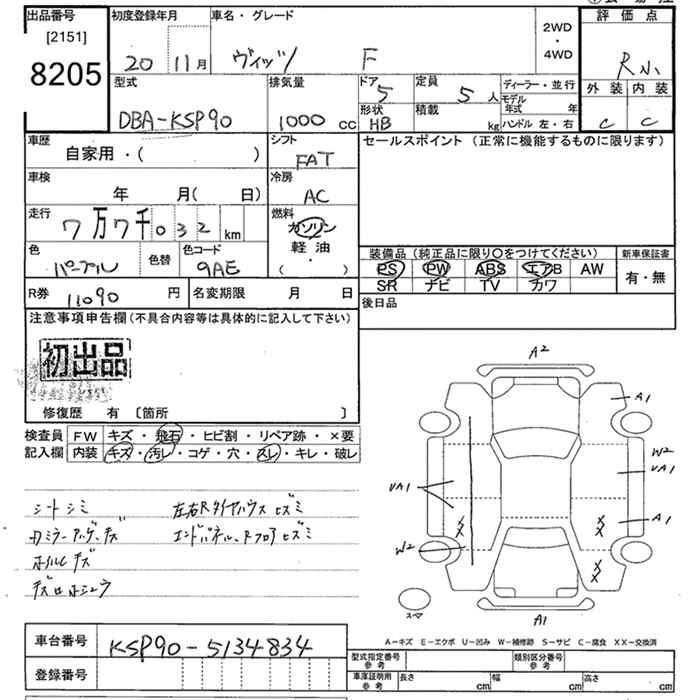 出品番号
[2151]
8205
初度登録年月
20 11月
車名・グレード
ヴィッツ F
2WD
・
4WD
評価点
R
外装 内装
C C
型式
DBA-KSP90
排気量
1000 cc
ドア
5
形状
HB
定員
5人
積載
kg
ディーラー・並行
モデル年式 年
ハンドル 左・右
車歴
自家用・( )
シフト
FAT
セールスポイント (正常に機能するものに限ります)
車検
年 月( 日)
冷房
AC
走行
7万7千032 km
燃料
ガソリン
軽油
・
( )
色
パープル
色替
色コード
9AE
装備品 (純正品に限り○をつけてください)
PS PW ABS エアB AW
SR ナビ TV カワ
新車保証書
有・無
R券 11090 円
名変期限 月 日
後日品
注意事項申告欄 (不具合内容等は具体的に記入して下さい)
初出品
修復歴 有 〔箇所 〕
検査員記入欄
FW キズ・飛石・ヒビ割・リペア跡・×要
内装 キズ・汚レ・コゲ・穴・スレ・キレ・破レ
シートシミ
左右Rタイヤハウスヒズミ
エンドパネル、Rフロアヒズミ
ホイルCキズ
A2
A1
W2
UA1
UA1
A1
XX
XX
XX
W2
スペア
A1
A-キズ E-エクボ U-凹み W-補修跡 S-サビ C-腐食 XX-交換済
車台番号
KSP90-5134834
登録番号
型式指定番号
参考
類別区分番号
参考
車庫証明用
参考
長さ cm
幅 cm
高さ cm